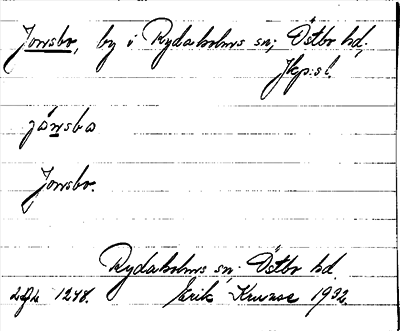 Jonsbo, by i Rydaholms sn; Östbo hd,
Jkp:s l.
jo̊nsbo
Jonsbo.
Rydaholms sn; Östbo hd.
1248. Erik Kruuse 1932